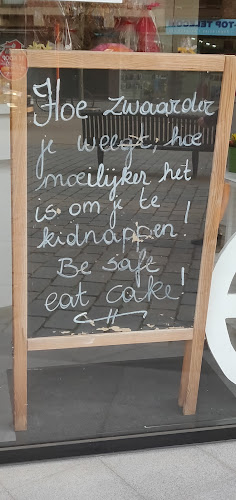 TOP TELECOM
Hoe zwaarder
je weegt, hoe
moeilijker het
is om je te
kidnappen!
Be safe
eat cake!